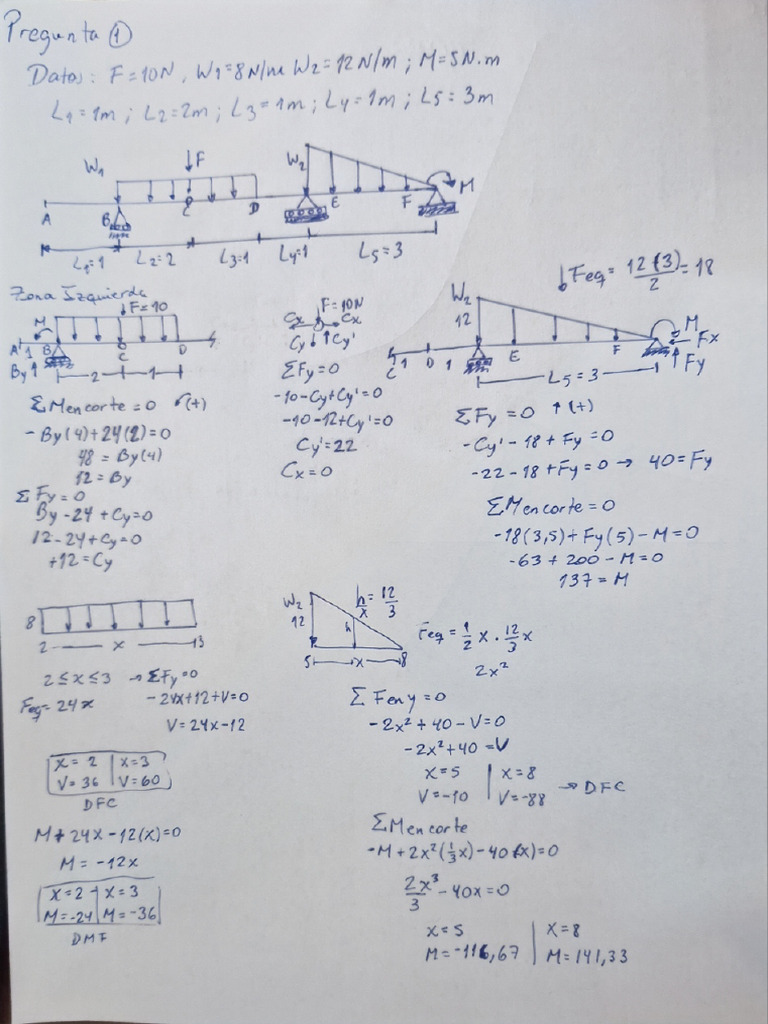 Pregunta ①
Datos: F=10N, W1=8N/m W2=12N/m; M=5N.m
L1=1m; L2=2m; L3=1m; L4=1m; L5=3m
W1 F W2 M
A B C D E F
L1=1 L2=2 L3=1 L4=1 L5=3
Feq = 12(3)/2 = 18
Zona Izquierda
M F=10
A 1 B C D
By 2 1
F=10N
Cx Cx
Cy Cy'
W2
12 M
Fx
C 1 D 1 E F Fy
L5=3
ΣMencorte=0 (+)
-By(4)+24(2)=0
48=By(4)
12=By
ΣFy=0
By-24+Cy=0
12-24+Cy=0
+12=Cy
ΣFy=0
-10-Cy+Cy'=0
-10-12+Cy'=0
Cy'=22
Cx=0
ΣFy=0 ↑(+)
-Cy'-18+Fy=0
-22-18+Fy=0 → 40=Fy
ΣMencorte=0
-18(3,5)+Fy(5)-M=0
-63+200-M=0
137=M
8
2 x 13
2≤x≤3 → ΣFy=0
Feq=24x -24x+12+V=0
V=24x-12
x=2 | x=3
V=36 | V=60
DFC
M+24x-12(x)=0
M=-12x
x=2 | x=3
M=-24 | M=-36
DMF
W2 h/x = 12/3
12 h
5 x 8
Feq = 1/2 x · 12/3 x
2x²
ΣFeny=0
-2x²+40-V=0
-2x²+40=V
x=5 | x=8
V=-10 | V=-88 → DFC
ΣMencorte
-M+2x²(1/3x)-40(x)=0
2x³/3 -40x=0
x=5 | x=8
M=-116,67 | M=141,33